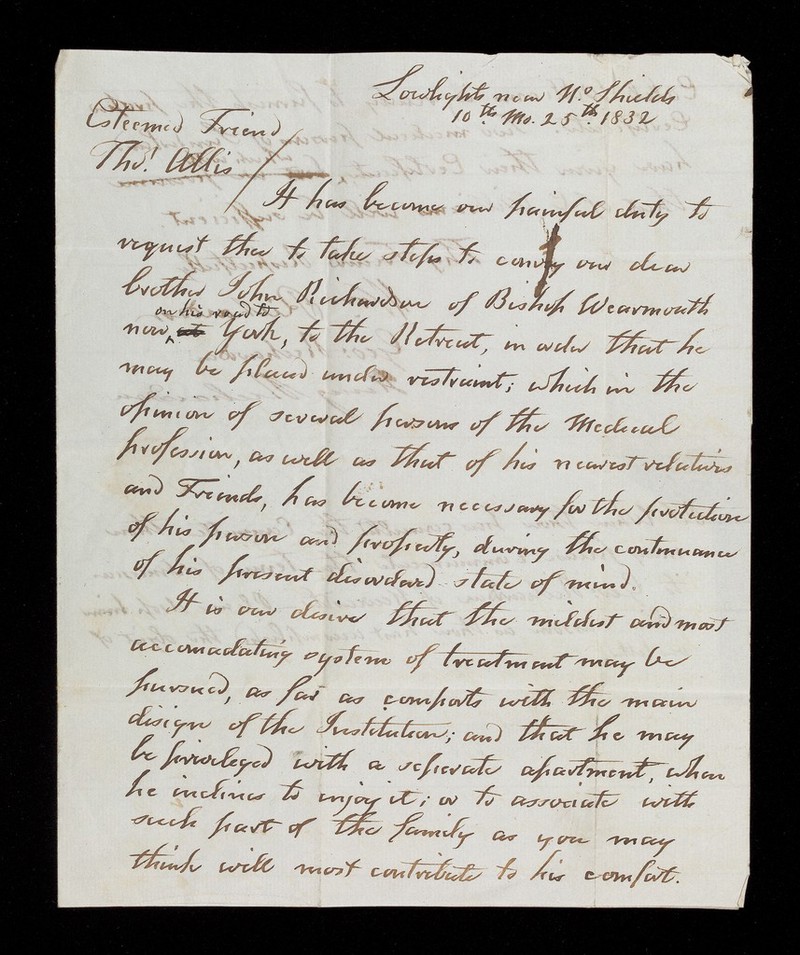 Lowlights near No Shields
10th Mo. 25th 1832
Esteemed Friend
Thos. Allis
It has become our painful duty to
request thee to take steps to convey our dear
brother John Richardson of Bishop Wearmouth
on his road to
now at York, to the Retreat, in order that he
may be placed under restraint; which in the
opinion of several persons of the Medical
profession, as well as that of his nearest relatives
and Friends, has become necessary for the protection
of his person and property, during the continuance
of his present disordered state of mind.
It is our desire that the mildest and most
accomadating system of treatment may be
pursued, as far as comports with the main
disign of the Institution; and that he may
be priviledged with a seperate apartment, when
he inclines to injoy it; or to associate with
such part of the family as you may
think will most contribute to his comfort.